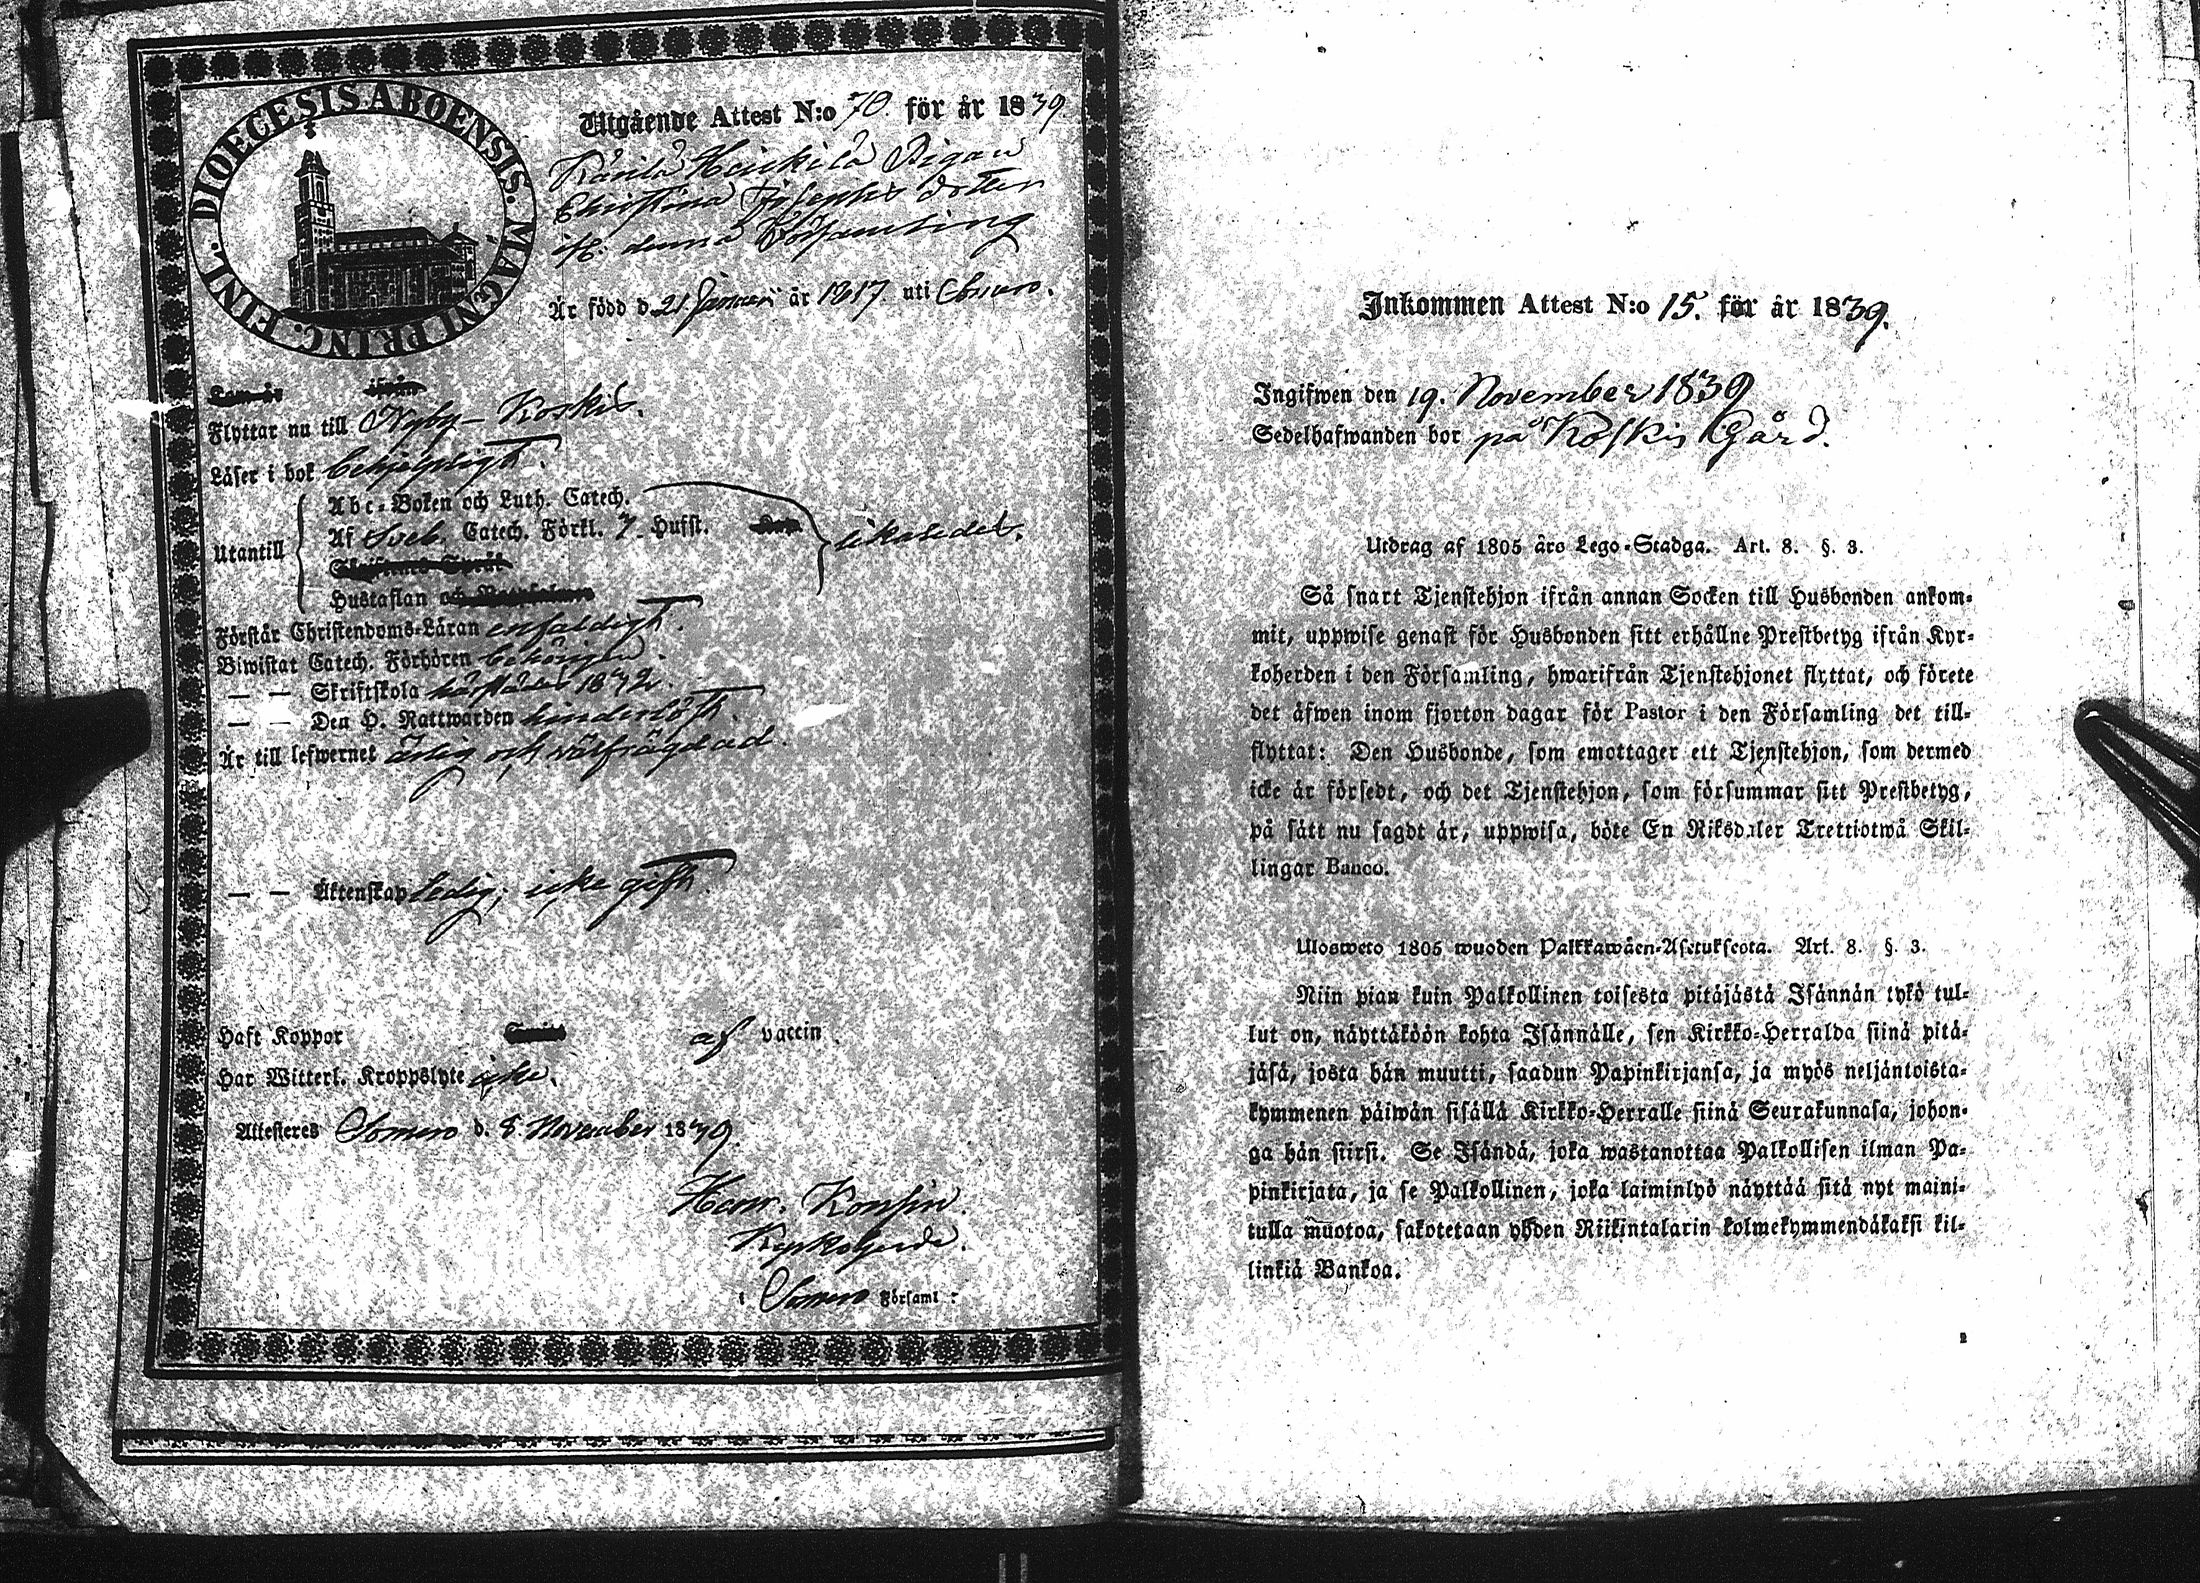 DIOECESIS ABOENSIS. MAGNI PRINC. FINL.
Utgående Attest N:o 70. för år 1839.
Heikilä Pigan
Christina Josephs dotter
denna Församling
Är född d. 21. Januari år 1817. uti
Flyttar nu till Kyby-Koskis.
Läser i bok behjelpligt.
Utantill
Abc-Boken och Luth. Catech.
Af Sveb. Catech. Förkl. 7. Hufst.
Hustaflan
Förstår Christendoms-Läran enfaldigt.
Biwistat Catech. Förhören behörigen
— — Skriftskola 1832.
— — Den H. Nattwarden hinderlöst.
Är till lefwernet ärlig och välfrägdad.
— — Äktenskap ledig; icke gift.
Haft Koppor af vaccin.
Har Witterl. Kroppslyte icke.
Attesteres Somero d. 8. November 1839.
Henr. Konsin.
Kyrkoherde.
i Somero Församl:
Inkommen Attest N:o 15. för år 1839.
Ingifwen den 19. November 1839
Sedelhafwanden bor på Koskis Gård.
Utdrag af 1805 års Lego-Stadga. Art. 8. §. 3.
Så snart Tjenstehjon ifrån annan Socken till Husbonden ankom-
mit, uppwise genast för Husbonden sitt erhållne Prestbetyg ifrån Kyr-
koherden i den Församling, hwarifrån Tjenstehjonet flyttat, och förete
det äfwen inom fjorton dagar för Pastor i den Församling det till-
flyttat: Den Husbonde, som emottager ett Tjenstehjon, som dermed
icke är försedt, och det Tjenstehjon, som försummar sitt Prestbetyg,
på sätt nu sagdt är, uppwisa, böte En Riksdaler Trettiotwå Skil-
lingar Banco.
Ulosweto 1805 wuoden Palkkawäen-Asetuksesta. Art. 8. §. 3.
Niin pian kuin Palkollinen toisesta pitäjästä Isännän tykö tul-
lut on, näyttäköön kohta Isännälle, sen Kirkko-Herralda siinä pitä-
jäsä, josta hän muutti, saadun Papinkirjansa, ja myös neljäntoista-
kymmenen päiwän sisällä Kirkko-Herralle siinä Seurakunnasa, johon-
ga hän siirsi. Se Isändä, joka wastanottaa Palkollisen ilman Pa-
pinkirjata, ja se Palkollinen, joka laiminlyö näyttää sitä nyt maini-
tulla muotoa, sakotetaan yhden Riikintalarin kolmekymmendäkaksi kil-
linkiä Bankoa.